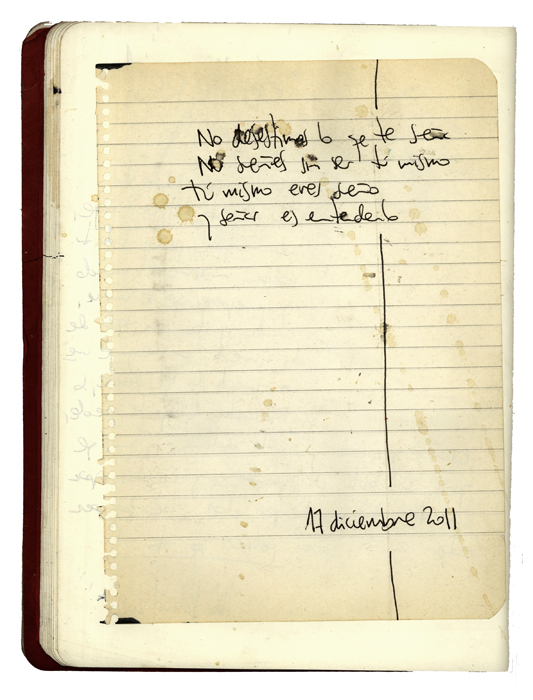 No desestimes lo q te seña
No señes sin ser tú mismo
tú mismo eres seño
y señar es entenderlo
17 diciembre 2011